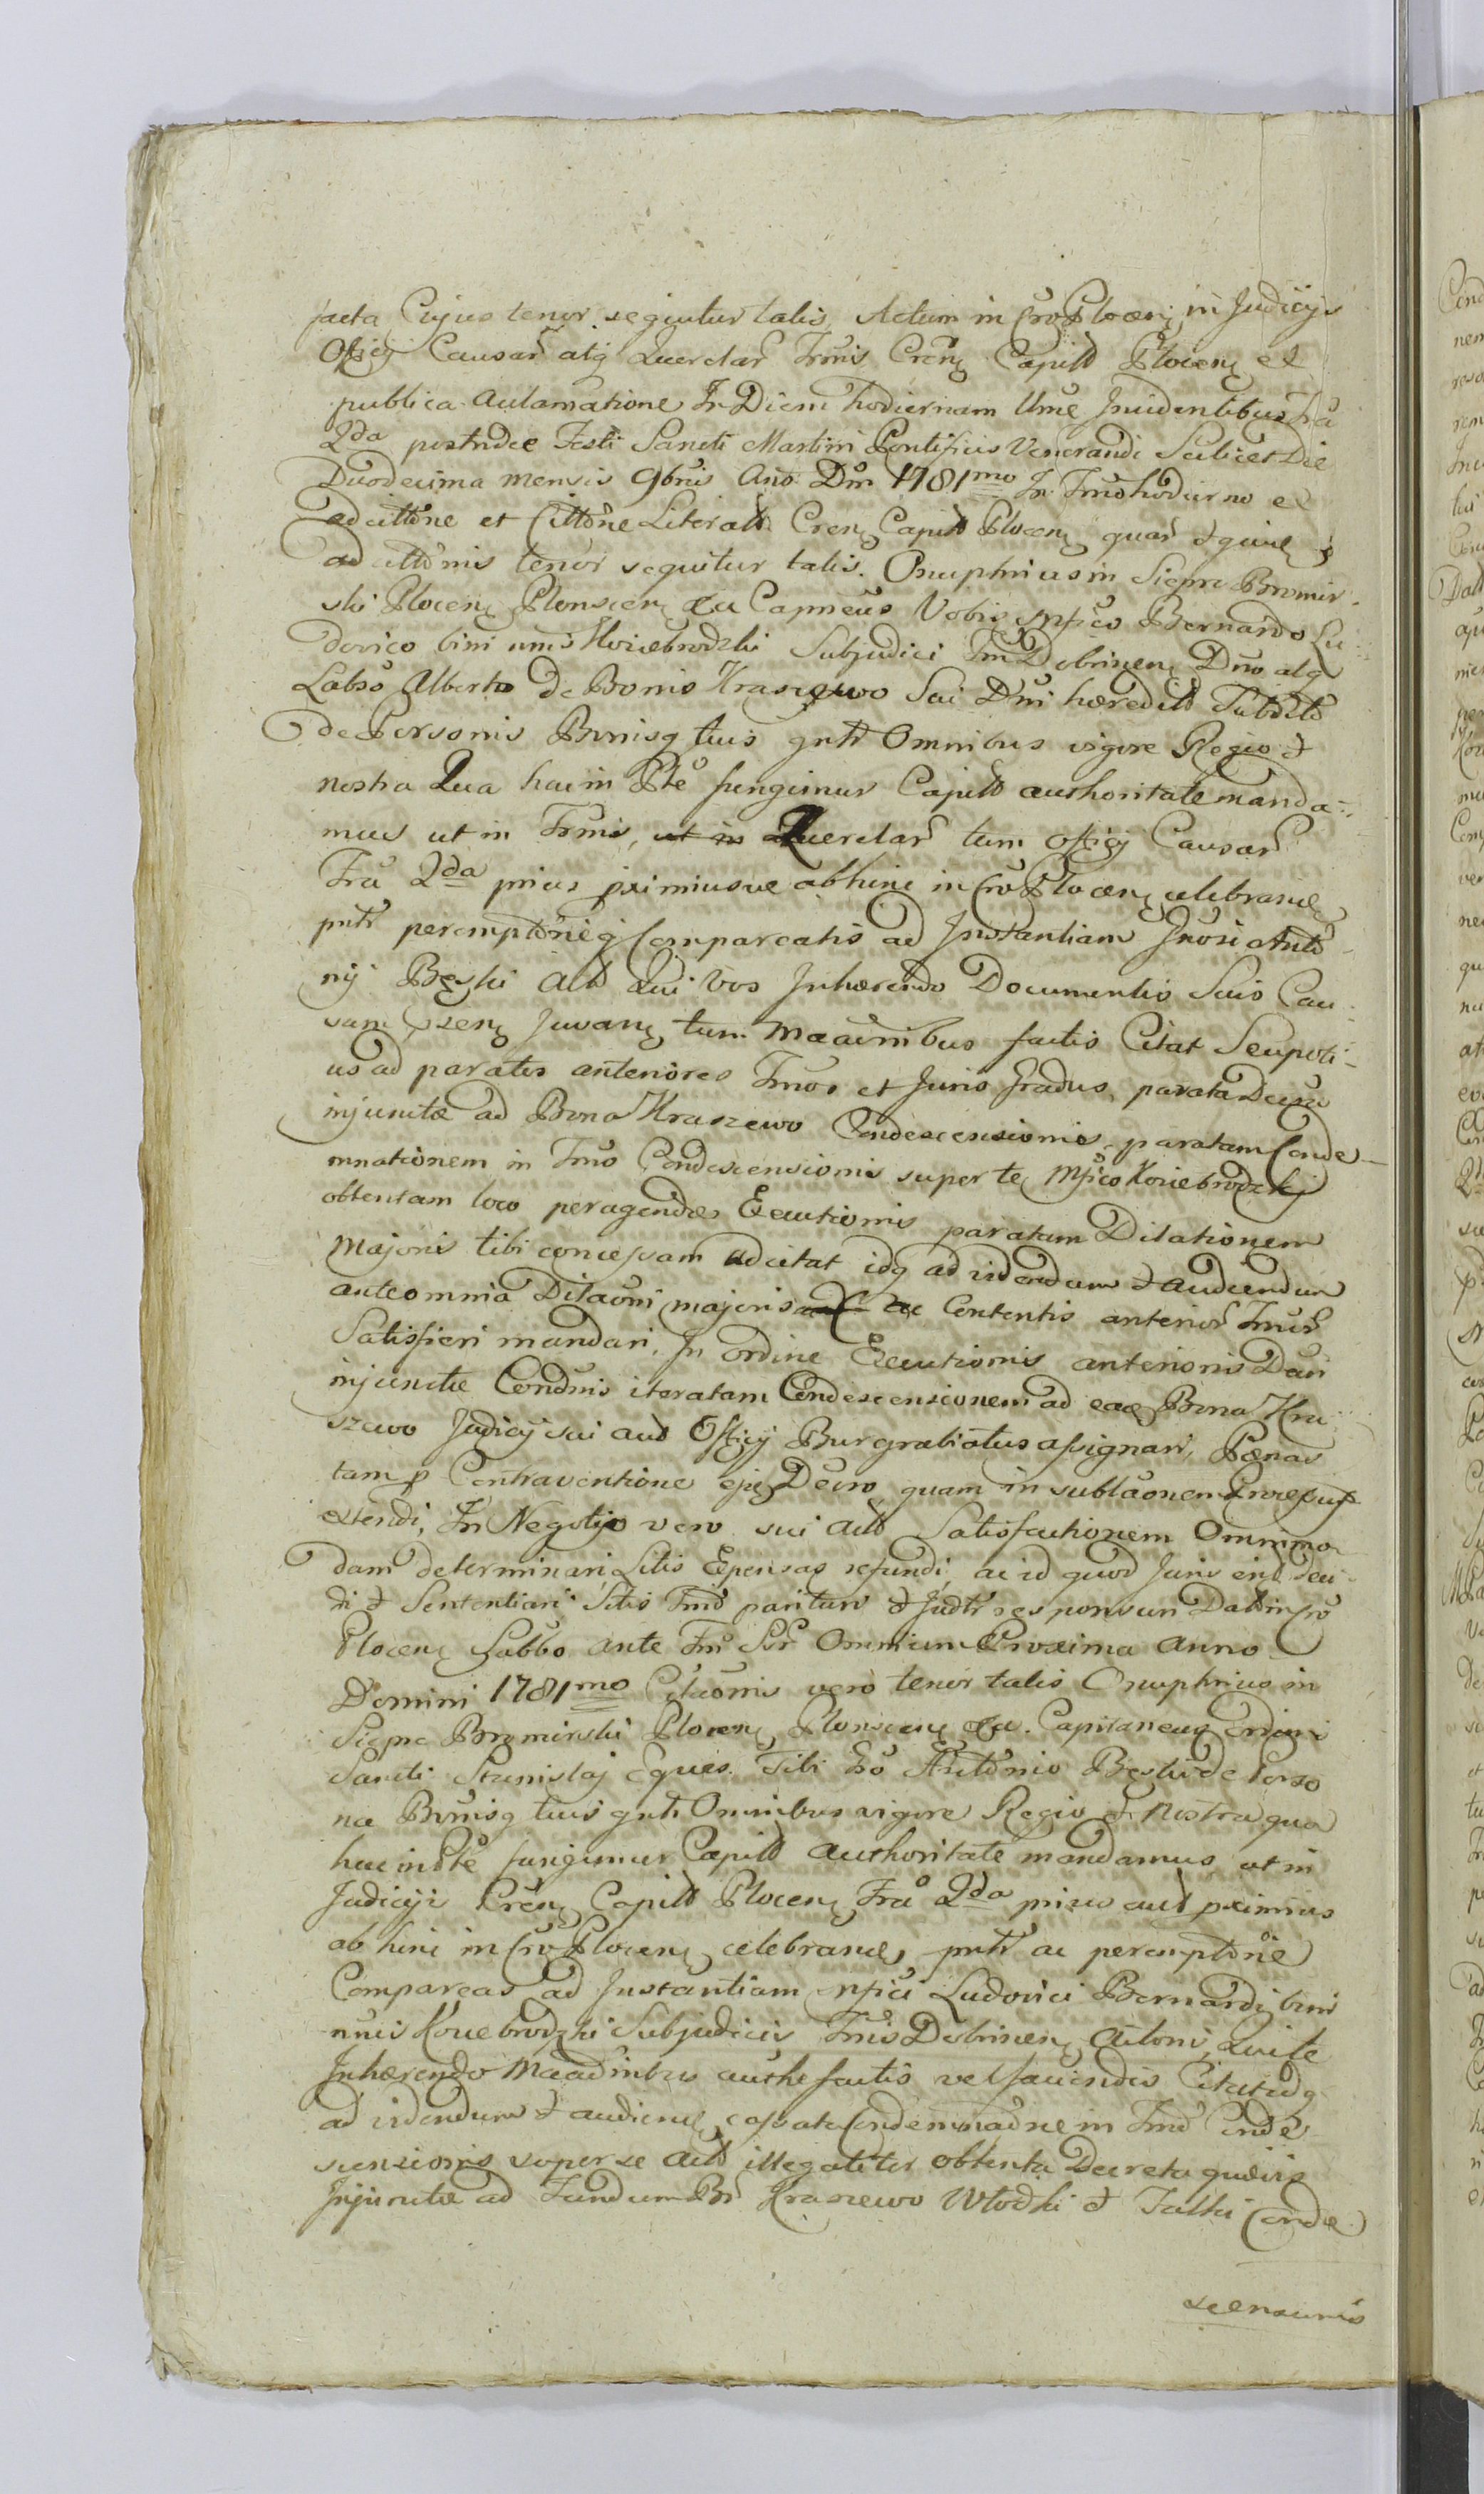 facta Cujus tenor sequitur talis, Actum in Cro Plocen, in Judicijs
Officij Causar atq Querelar Trnis Cren Capitl Plocen et
publica Aulamatione In Diem hodiernam Ume Incidentibus Fra
2da postridie Festi Sancti Martini Pontificis Venerandi Scilicet Die
Duodecima mensis 9bris Ano Dni 1781mo In Trno hodierno et
adcittone et Cittone Literatt Cren Capitl Plocen quar et quive
adcittonis tenor sequitur talis. Onuphrius in Siepre Bromir-
ski Plocen Plonscen &a Capneus Vobis Mfico Bernardo Lu-
dovico bini unis Koziebrodzki Subjudici Trr Dobrinen Dno atq
Labso Alberto De Bonis Kraszewo Sui Dni hæredit Subdito
de Personis Bonisq tuis gnlr Omnibus vigore Regio et
nostra Qua hac in Pte fungimur Capitl authoritate manda-
mus ut in Trnis, Querelar tum officij Causar
Fra 2da prius proximiusve abhinc in Cro Plocen celebrand
pntr peremptorieq Compareatis ad Instantiam Gnosi Anto
nij Bęski Act Qui Vos Inhærendo Documentis Suis Cau-
sam pzen Juvan tum Maanibus factis Citat Seu poti-
us ad paratos anteriores Trnos et Juris Gradus, parata Decreto
injunctæ ad Bona Kraszewo Condescensionis, paratam Conde-
mnationem in Trno Condescensionis super te Mfico Koziebrodzki
obtentam loco peragendæ Executionis paratam Dilationem
Majoris tibi concessam adcitat idq ad videndum et audiendum
ante omnia Dilaoni majoris ac Contentis anterior Trnor
Satisfieri mandari, In ordine Executionis anterioris Decri
injunctæ Condnis iteratam Condescensionem ad eac Bona Kra-
szewo Judicij sui aut Officij Burgrabiatus assignari, Pænas
tam p Contraventione ejq Decro quam in sublaonem
extendi, In Negotijo vero sui act Satisfactionem Omnimo-
dam determinari Litis Expensas refundi, ac id quod Juris erit Deci-
di et Sententiari Sitis Trnd parituri et Judtr responsuri Dat in Cro
Plocen Sabbo ante Fm Sor Omnium Proxima Anno
Domini 1781mo Citaonis vero tenor talis Onuphrius in
Siepre Bromirski Plocen Plonscen &a. Capitaneus Ordini
Sancti Stanislaj Eques. Tibi Gso Antonio Bęski de Perso
na Bonisq tuis gnlr Omnibus vigore Regio et Nostra qua
hac in Pte fungimur Capitl Authoritate mandamus ut in
Judicijs Cren Capitl Plocen Fra 2da prius aut proximius
ab hinc in Cro Plocen celebrand, pntr ac peremptorie
Compareas ad Instantiam Mfici Ludovici Bernardi bini
unis Koziebrodzki Subjudicis Trris Dobrinen Actoris, Qui te
Inhærendo Maanibus authe factis vel faciendis Citat idq
ad videndum et audiend, cassata Condemnaone in Trno Conde
scensionis super se Act illegaliter obtenta Decreto quovis
Injuncta ad Fundum Br Kraszewo Włodki et Falki Conde
scensionis